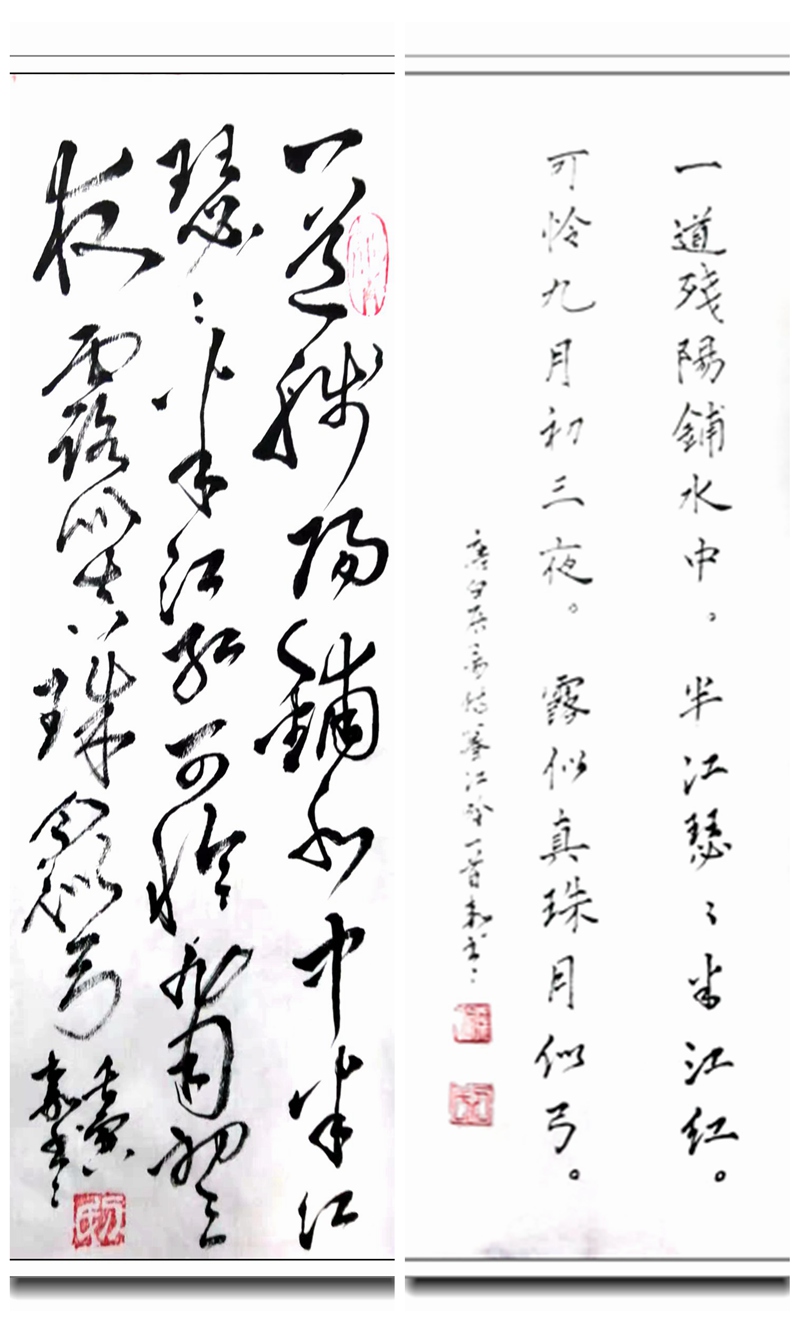 一道残陽鋪水中。半江瑟〻半江红。
可怜九月初三夜。露似真珠月似弓。
唐白居易诗暮江吟一首
一道残陽鋪水中半江
瑟〻半江红可憐九月初三
夜露似真珠月似弓